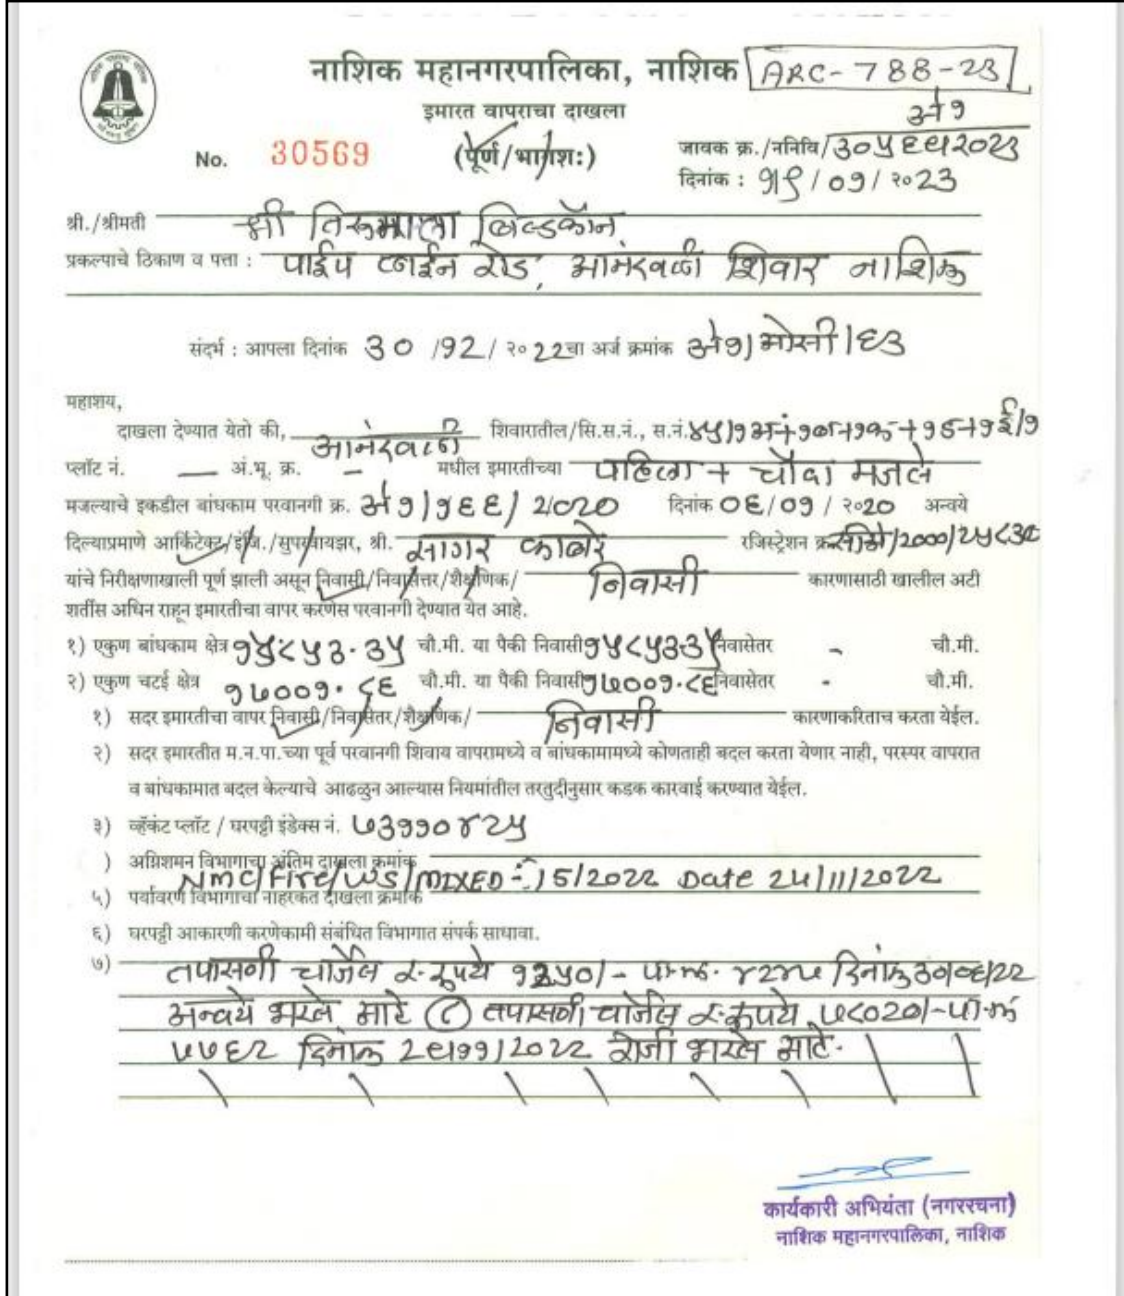 नाशिक महानगरपालिका, नाशिक ARC-788-23
इमारत वापराचा दाखला
अे१
No. 30569 (पूर्ण/भागशः) जावक क्र./ननिवि/
दिनांक : १९/०१/२०२३
श्री./श्रीमती श्री तिरुमाला बिल्डकॉन
प्रकल्पाचे ठिकाण व पत्ता : पाईप लाईन रोड, आनंदवली शिवार नाशिक
संदर्भ : आपला दिनांक ३०/१२/२०२२चा अर्ज क्रमांक अे१/ओसी/६३
महाशय,
दाखला देण्यात येतो की, आनंदवली शिवारातील/सि.स.नं., स.नं.
प्लॉट नं. — अं.भू. क्र. - मधील इमारतीच्या पहिला + चौदा मजले
मजल्याचे इकडील बांधकाम परवानगी क्र. अे१/१६६/२०२० दिनांक ०६/०१/२०२० अन्वये
दिल्याप्रमाणे आर्किटेक्ट/इंजि./सुपरवायझर, श्री. सागर काबरे रजिस्ट्रेशन क्र.
यांचे निरीक्षणाखाली पूर्ण झाली असून निवासी/निवासेत्तर/शैक्षणिक/ निवासी कारणासाठी खालील अटी
शर्तीस अधिन राहून इमारतीचा वापर करणेस परवानगी देण्यात येत आहे.
१) एकुण बांधकाम क्षेत्र १५८५३.३५ चौ.मी. या पैकी निवासी १५८५३.३५ निवासेतर - चौ.मी.
२) एकुण चटई क्षेत्र १७००१.८६ चौ.मी. या पैकी निवासी १७००१.८६ निवासेतर - चौ.मी.
१) सदर इमारतीचा वापर निवासी/निवासेतर/शैक्षणिक/ निवासी कारणाकरिताच करता येईल.
२) सदर इमारतीत म.न.पा.च्या पूर्व परवानगी शिवाय वापरामध्ये व बांधकामामध्ये कोणताही बदल करता येणार नाही, परस्पर वापरात
व बांधकामात बदल केल्याचे आढळुन आल्यास नियमांतील तरतुदीनुसार कडक कारवाई करण्यात येईल.
३) व्हॅकंट प्लॉट / घरपट्टी इंडेक्स नं. ७३११०४२५
) अग्निशमन विभागाचा अंतिम दाखला क्रमांक
NMC/Fire/WS/MIXED-15/2022 Date 24/11/2022
५) पर्यावरण विभागाचा नाहरकत दाखला क्रमांक
६) घरपट्टी आकारणी करणेकामी संबंधित विभागात संपर्क साधावा.
७) तपासणी चार्जेस र.रुपये दिनांक
अन्वये भरले आहे ८ तपासणी चार्जेस र.रुपये ७८०२०/- पा.क्रं
५७६२ दिनांक २९/११/२०२२ रोजी भरले आहे.
कार्यकारी अभियंता (नगररचना)
नाशिक महानगरपालिका, नाशिक